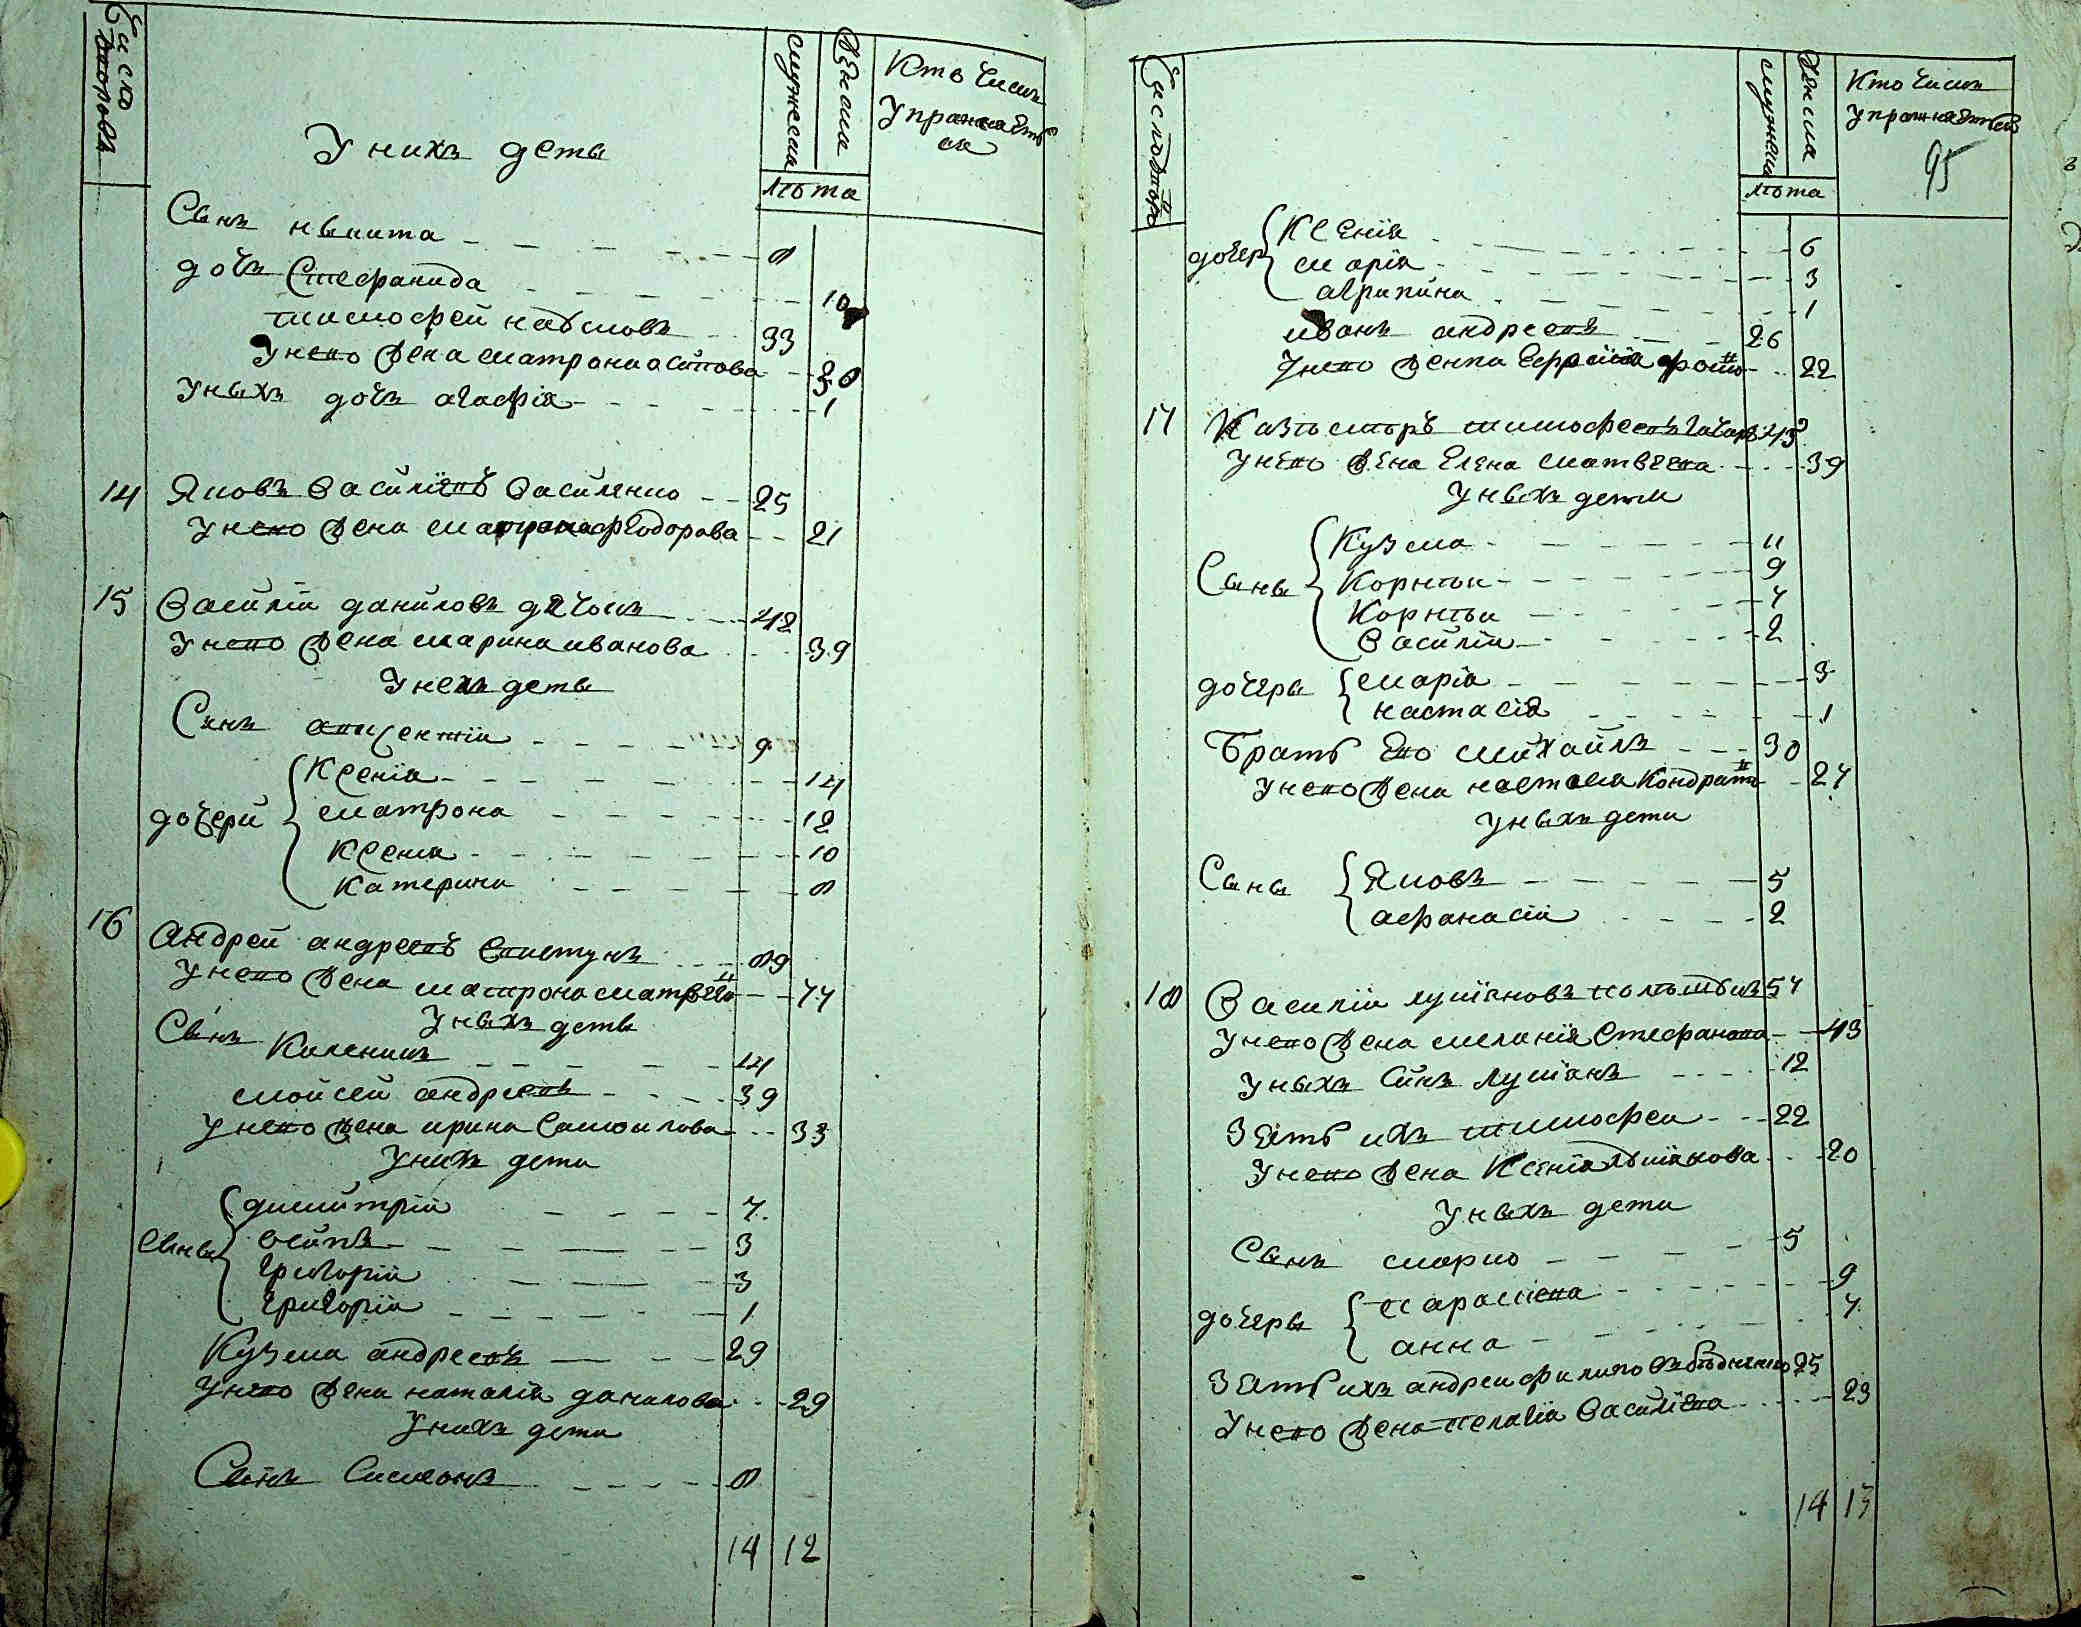 Число дворовъ
У нихъ дети
мужеска
женска
лѣта
Кто Чимъ
Упражняетъ
ся
Сынъ никита 8
дочь Стефанида 10
тимофей наумовъ 33
У него жена матрона осипова 30
У ныхъ дочь агафія 1
14 Яковъ Василіевъ Василенко 25
У него жена матрона феодорова 21
15 Василій даниловъ 42
У него жена марина иванова 39
У нехъ дети
Сынъ авксентій 9
дочери
Ксенія 14
матрона 12
Ксенія 10
Катерина 8
16 Андрей андреевъ Свистунъ 89
У него жена матрона матвѣев 77
У ныхъ дети
Сынъ Каленикъ 14
мойсей андреевъ 39
У него жена ирина Самоилова 33
У нихъ дети
Сыны
димитрій 7
осипъ 3
григорій 3
григорій 1
Кузма андреевъ 29
У него жена наталія данилова 29
У нихъ дети
Сынъ Симеонъ 8
14 12
Число дворо
мужеска
женска
лѣта
Кто Чимъ
Упражняется
95
дочер
Ксенія 6
марія 3
агрипина 1
иванъ андреевъ 26
У него женка 22
17 Казѣмиръ тимофеевъ 45
У него жена Елена матвеева 39
У ныхъ дети
Сыны
Кузма 11
Корнѣи 9
Корнѣи 7
Василіи 2
дочеры
марія 3
настасія 1
Братъ Его михайлъ 30
У него жена настасия Кондрат 27
У ныхъ дети
Сыны
Яковъ 5
афанасій 2
18 Василіи лукіяновъ 57
У него жена меланія Стефанова 43
У ныхъ Синъ лукіянъ 12
Зять ихъ тимофеи 22
У него жена Ксенія 20
У ныхъ дети
Сынъ марко 5
дочеры
параскева 9
анна 7
Зять ихъ андреи филипов 25
У него жена пелагіа Василіева 23
14 13